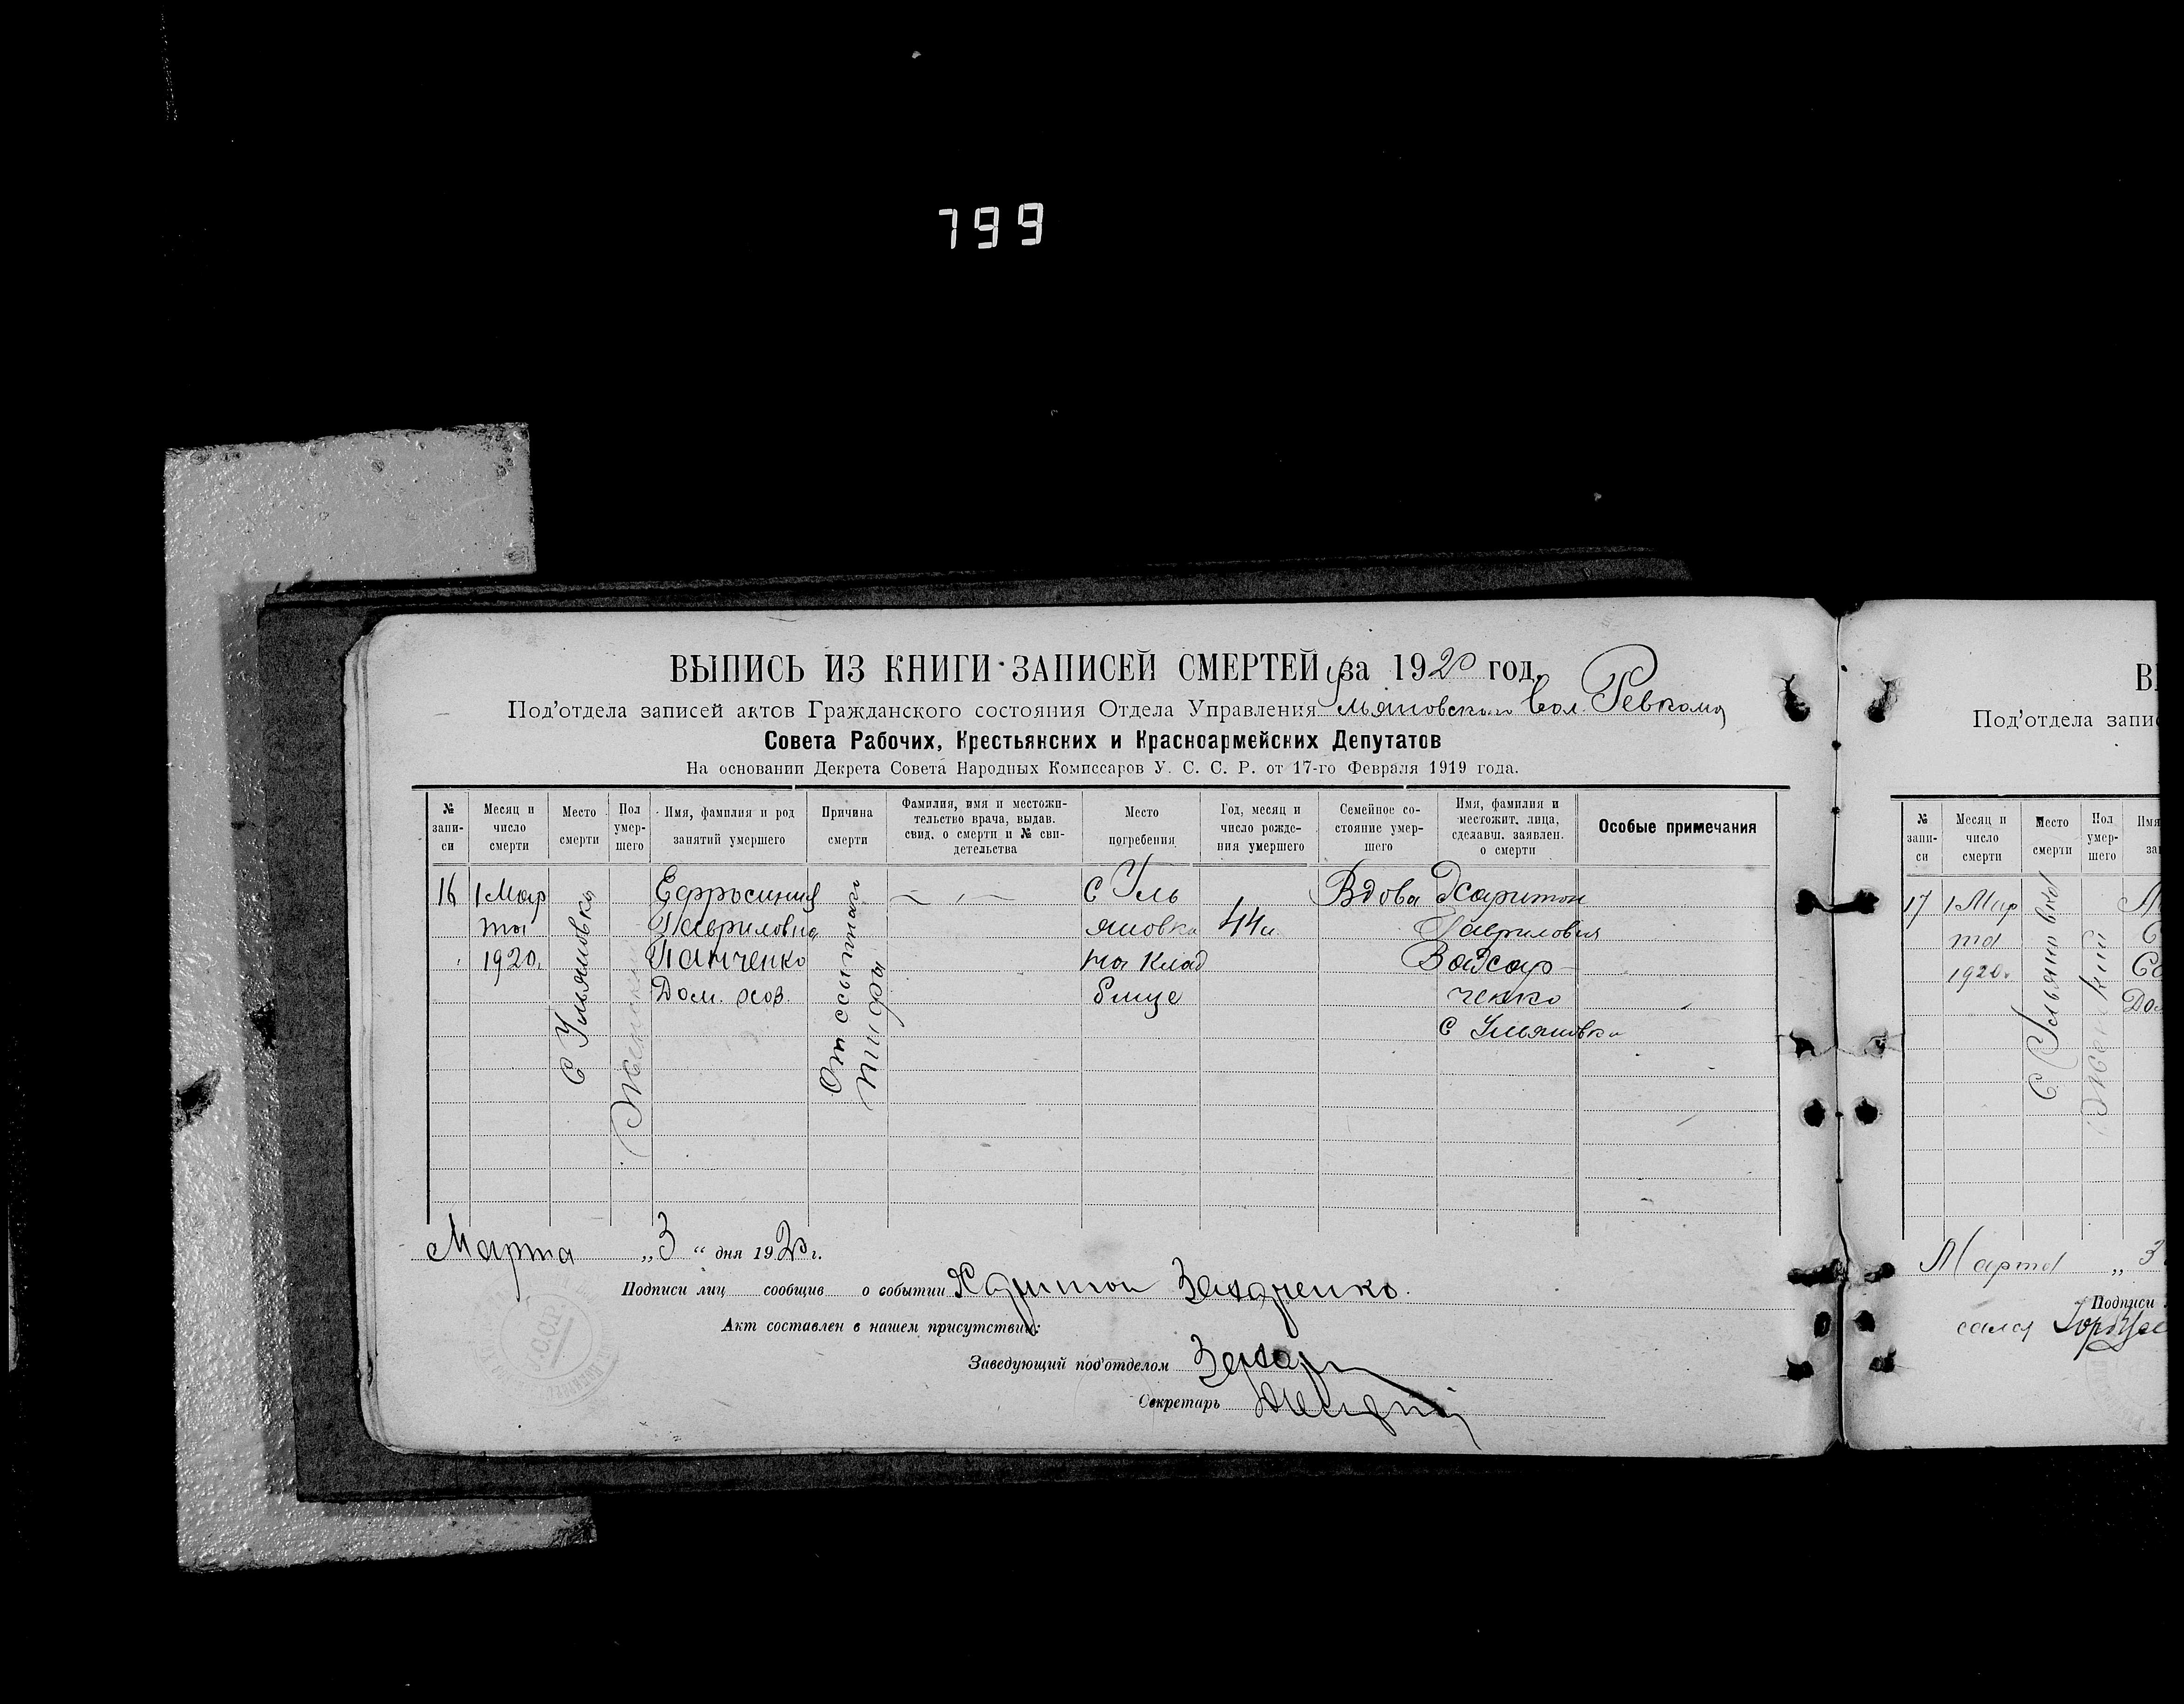 799
ВЫПИСЬ ИЗ КНИГИ ЗАПИСЕЙ СМЕРТЕЙ за 1920 год.
Под'отдела записей актов Гражданского состояния Отдела Управления Ульяновского Вол. Ревкома
Совета Рабочих, Крестьянских и Красноармейских Депутатов
На основании Декрета Совета Народных Комиссаров У. С. С. Р. от 17-го Февраля 1919 года.
№ запи-си
Месяц и число смерти
Место смерти
Пол умер-шего
Имя, фамилия и род занятий умершего
Причина смерти
Фамилия, имя и местожи-тельство врача, выдав. свид. о смерти и № сви-детельства
Место погребения
Год, месяц и число рожде-ния умершего
Семейное со-стояние умер-шего
Имя, фамилия и местожит. лица, сделавш. заявлен. о смерти
Особые примечания
16
1 Мар
та
1920.
С Ульяновка
Женский
Ефросиния
Гавриловна
Панченко
Дом. хоз.
От сыпного
тифа
С Уль
яновка
на клад
бище
44
Вдова
Харитон
Гаврилович
Захар
ченко
С Ульяновка
Марта „3“ дня 1920 г.
Подписи лиц сообщив о событии Харитон Захарченко.
Акт составлен в нашем присутствии:
Заведующий под'отделом Захар
Секретарь
В
Под'отдела запис
№ запи-си
Месяц и число смерти
Место смерти
Пол умер-шего
17
1 Мар
та
1920.
С Ульяновка
Женский
Марта „3
Подписи